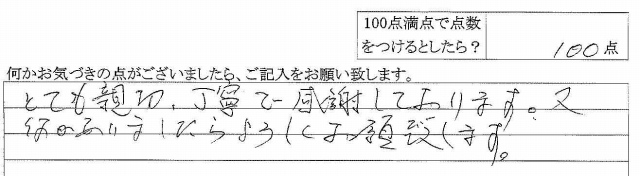 100点満点で点数
をつけるとしたら?
100点
何かお気づきの点がございましたら、ご記入をお願い致します。
とても親切、丁寧で感謝しております。又
何かありましたらよろしくお願致します。